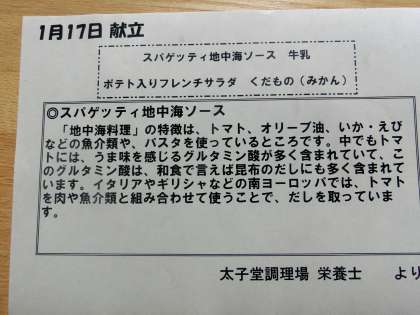 1月17日 献立
スパゲッティ地中海ソース　牛乳
ポテト入りフレンチサラダ　くだもの（みかん）
◎スパゲッティ地中海ソース
「地中海料理」の特徴は、トマト、オリーブ油、いか・えび
などの魚介類や、パスタを使っているところです。中でもトマ
トには、うま味を感じるグルタミン酸が多く含まれていて、こ
のグルタミン酸は、和食で言えば昆布のだしにも多く含まれて
います。イタリアやギリシャなどの南ヨーロッパでは、トマト
を肉や魚介類と組み合わせて使うことで、だしを取っていま
す。
太子堂調理場 栄養士　より